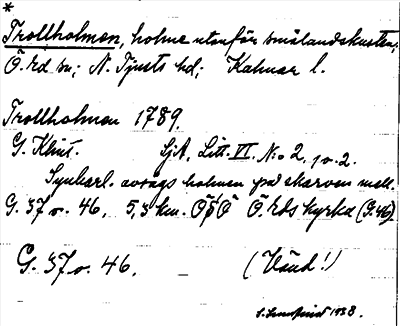 *
Trollholmen, holme utanför smålandskusten,
Ö. Ed sn; N. Tjusts hd; Kalmar l.
Trollholmen 1789.
G. Klint. SjA, Litt. VI. N:o 2, p. 2.
Synbarl. avsågs holmen på skarven mell.
G. 37 o. 46, 5,3 km. ÖSÖ Ö. Eds kyrka (G. 46).
G. 37 o. 46.
(Vänd!)
1938.